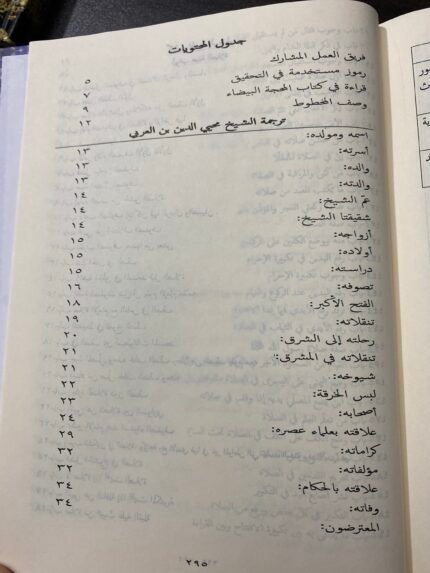 جدول المحتويات
فريق العمل المشارك ٥
رموز مستخدمة في التحقيق ٧
قراءة في كتاب المحجة البيضاء ٩
وصف المخطوط ١٢
ترجمة الشيخ محيي الدين بن العربي
اسمه ومولده: ١٣
أسرته: ١٣
والده: ١٣
والدته: ١٤
عمّ الشيخ: ١٤
شقيقتا الشيخ: ١٤
أزواجه: ١٥
أولاده: ١٥
دراسته: ١٥
تصوفه: ١٦
الفتح الأكبر: ١٨
تنقلاته: ١٩
رحلته إلى الشرق: ٢٠
تنقلاته في المشرق: ٢١
شيوخه: ٢١
لبس الخرقة: ٢٢
أصحابه: ٢٣
علاقته بعلماء عصره: ٢٤
كراماته: ٢٩
مؤلفاته: ٣٢
علاقته بالحكام: ٣٢
وفاته: ٣٤
المعترضون: ٣٤
٢٩٥